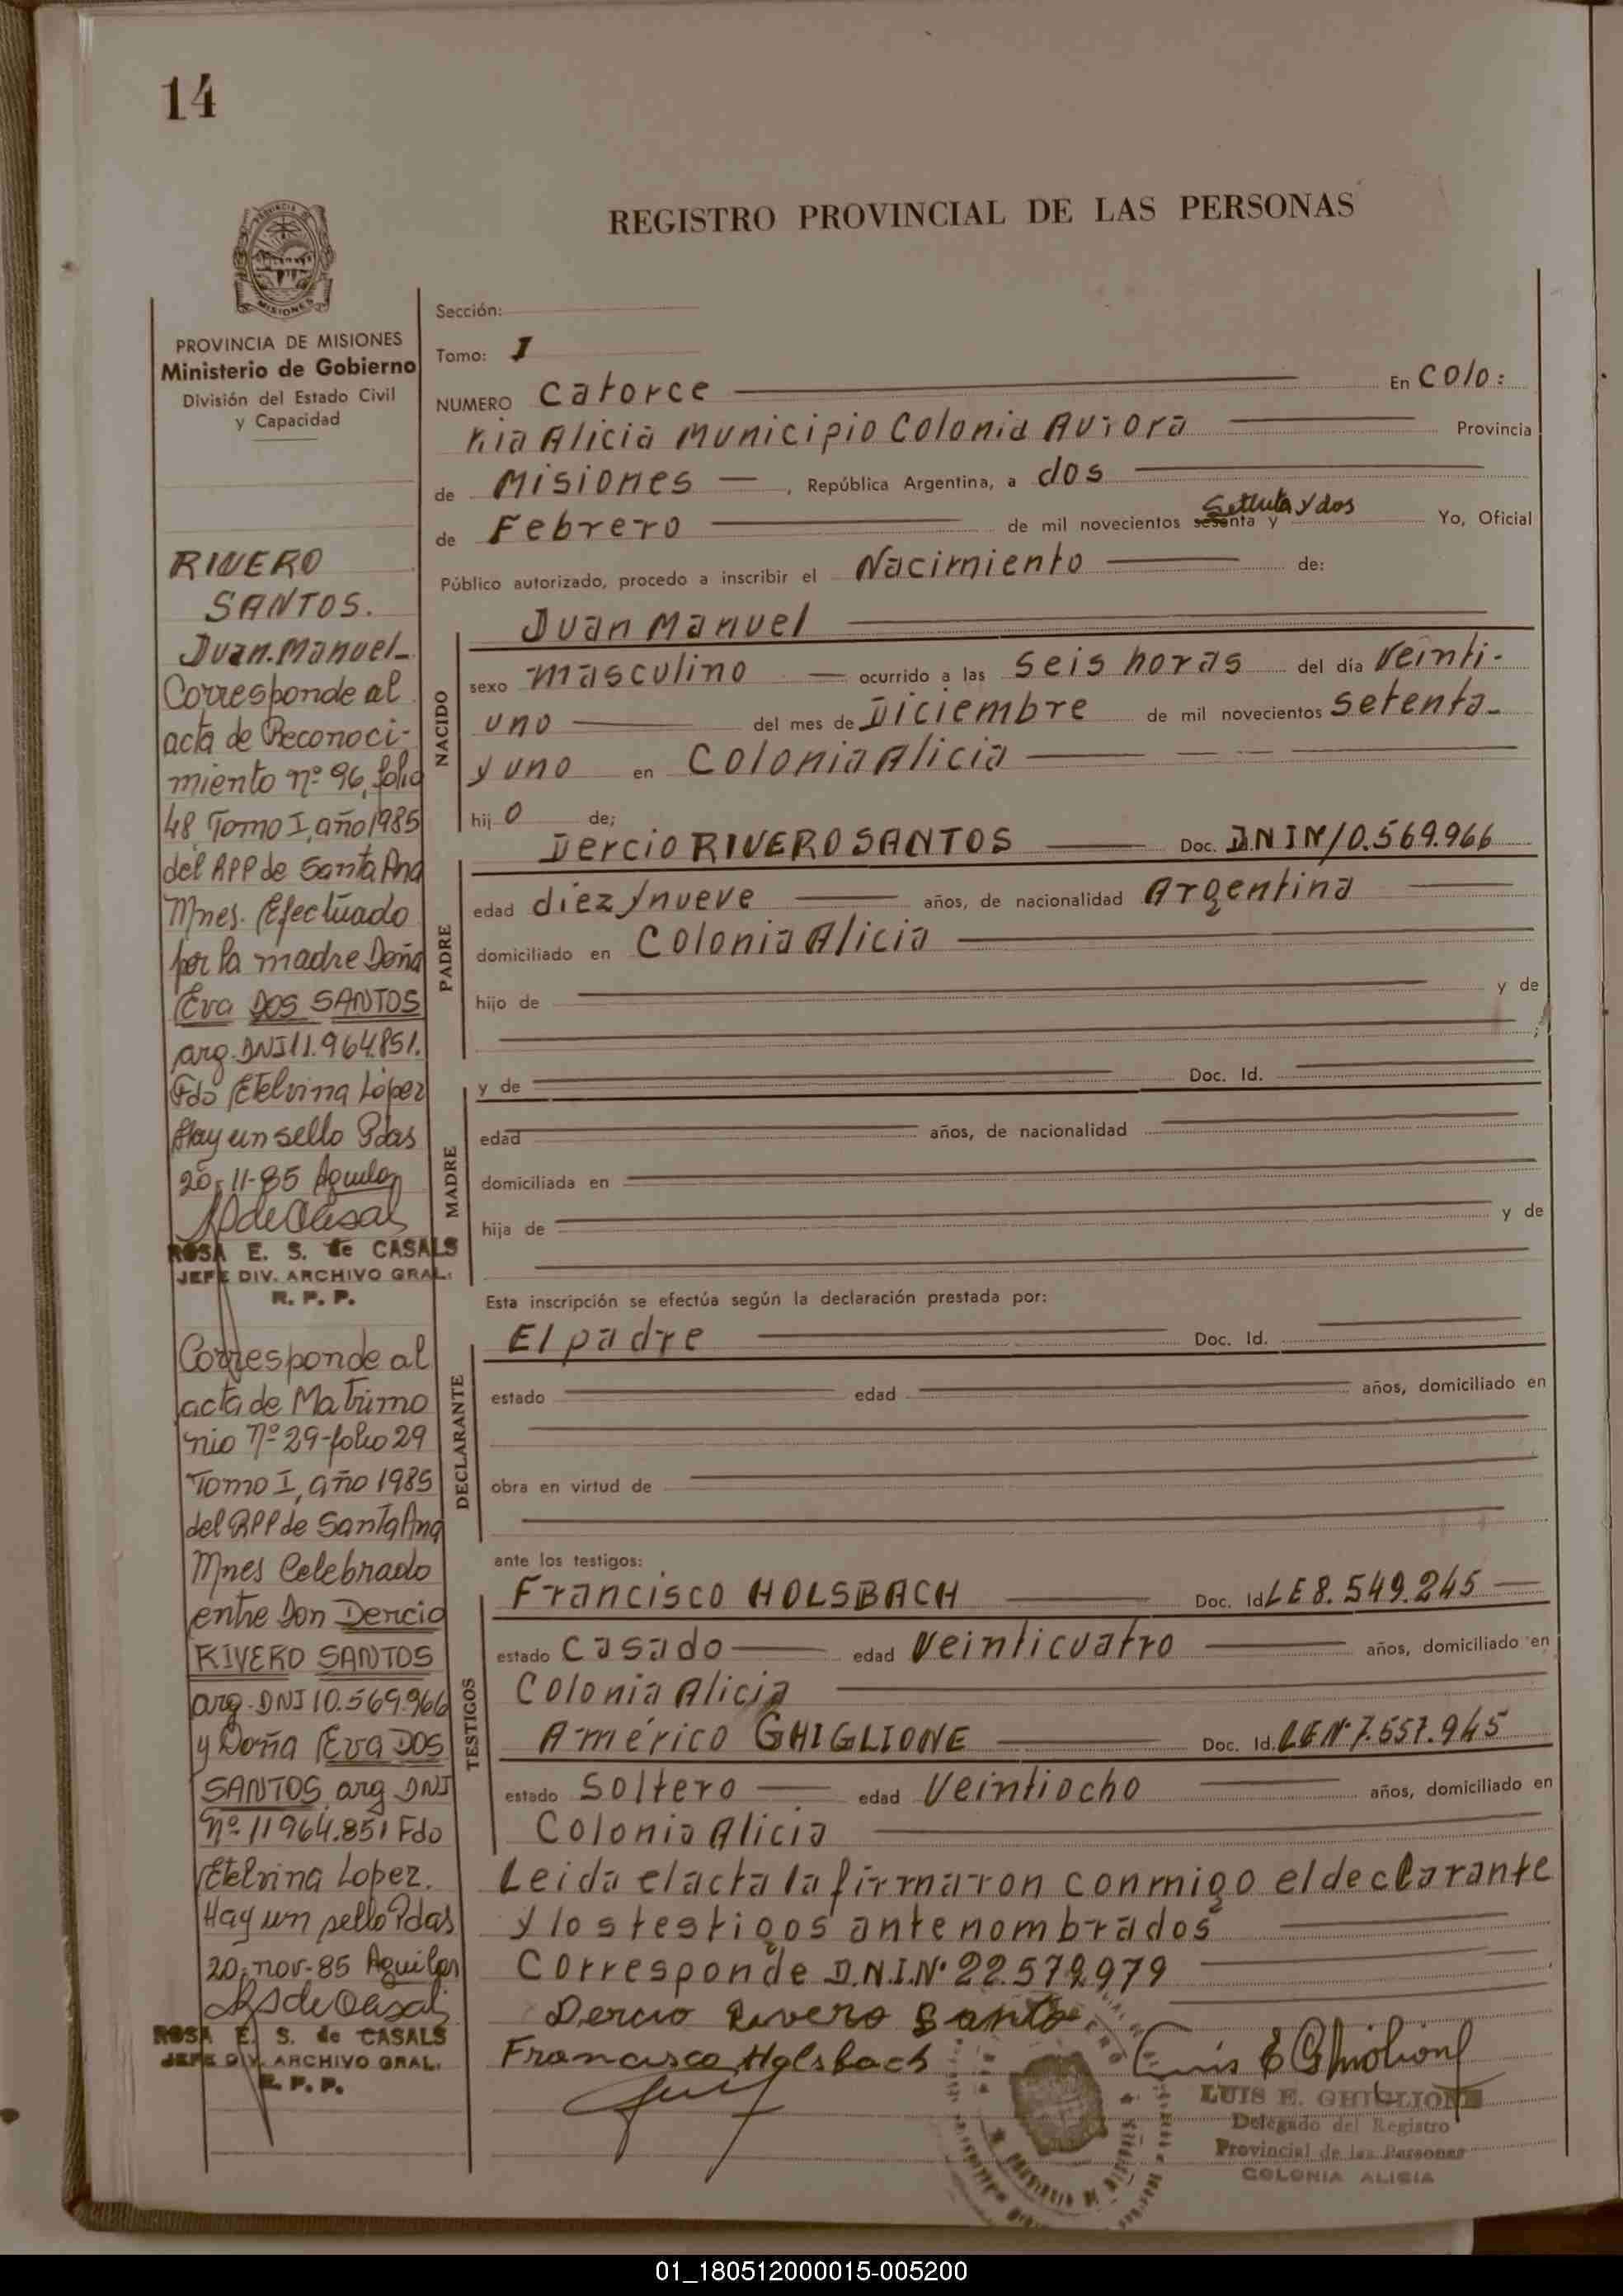 14
REGISTRO PROVINCIAL DE LAS PERSONAS
PROVINCIA DE MISIONES
Ministerio de Gobierno
División del Estado Civil
y Capacidad
RIVERO
SANTOS.
Juan Manuel
Corresponde al
acta de Reconoci-
miento nº 96, folio
48, Tomo I, año 1985
del RPP de Santa Ana
Mnes. Efectuado
por la madre Doña
Eva DOS SANTOS
arg. DNI 11.964.851.
Fdo Etelvina López
Hay un sello Pdas
20-11-85 Aguilar
ROSA E. S. de CASALS
JEFE DIV. ARCHIVO GRAL.
R. P. P.
Corresponde al
acta de Matrimo
nio Nº 29-folio 29
Tomo I, año 1985
del RPP de Santa Ana
Mnes Celebrado
entre Don Dercio
RIVERO SANTOS
arg. DNI 10.569.966
y Doña Eva DOS
SANTOS arg DNI
Nº 11964.851 Fdo
Etelvina Lopez.
Hay un sello Pdas
20-nov-85 Aguilar
ROSA E. S. de CASALS
JEFE DIV. ARCHIVO GRAL.
R. P. P.
Sección:
Tomo: I
NUMERO Catorce En Colo:
nia Alicia Municipio Colonia Aurora Provincia
de Misiones, República Argentina, a dos
de Febrero de mil novecientos sesenta y setenta y dos Yo, Oficial
Público autorizado, procedo a inscribir el Nacimiento de:
NACIDO
Juan Manuel
sexo masculino ocurrido a las seis horas del día Veinti-
uno del mes de Diciembre de mil novecientos setenta
y uno en Colonia Alicia
hijo de;
PADRE
Dercio RIVERO SANTOS Doc. D.N.I Nº 10.569.966
edad diez y nueve años, de nacionalidad Argentina
domiciliado en Colonia Alicia
hijo de y de
MADRE
y de Doc. Id.
edad años, de nacionalidad
domiciliada en
hija de y de
Esta inscripción se efectúa según la declaración prestada por:
DECLARANTE
El padre Doc. Id.
estado edad años, domiciliado en
obra en virtud de
ante los testigos:
TESTIGOS
Francisco HOLSBACH Doc. Id. LE 8.549.245
estado Casado edad Veinticuatro años, domiciliado en
Colonia Alicia
Américo GHIGLIONE Doc. Id. LE Nº 7.557.945
estado Soltero edad Veintiocho años, domiciliado en
Colonia Alicia
Leida el acta la firmaron conmigo el declarante
y los testigos antenombrados
Corresponde D.N.I.Nº 22.572.979
Dercio Rivero Santo
Francisco Holsbach
Luis E Ghiglione
LUIS E. GHIGLIONE
Delegado del Registro
Provincial de las Personas
COLONIA ALICIA
01_180512000015-005200